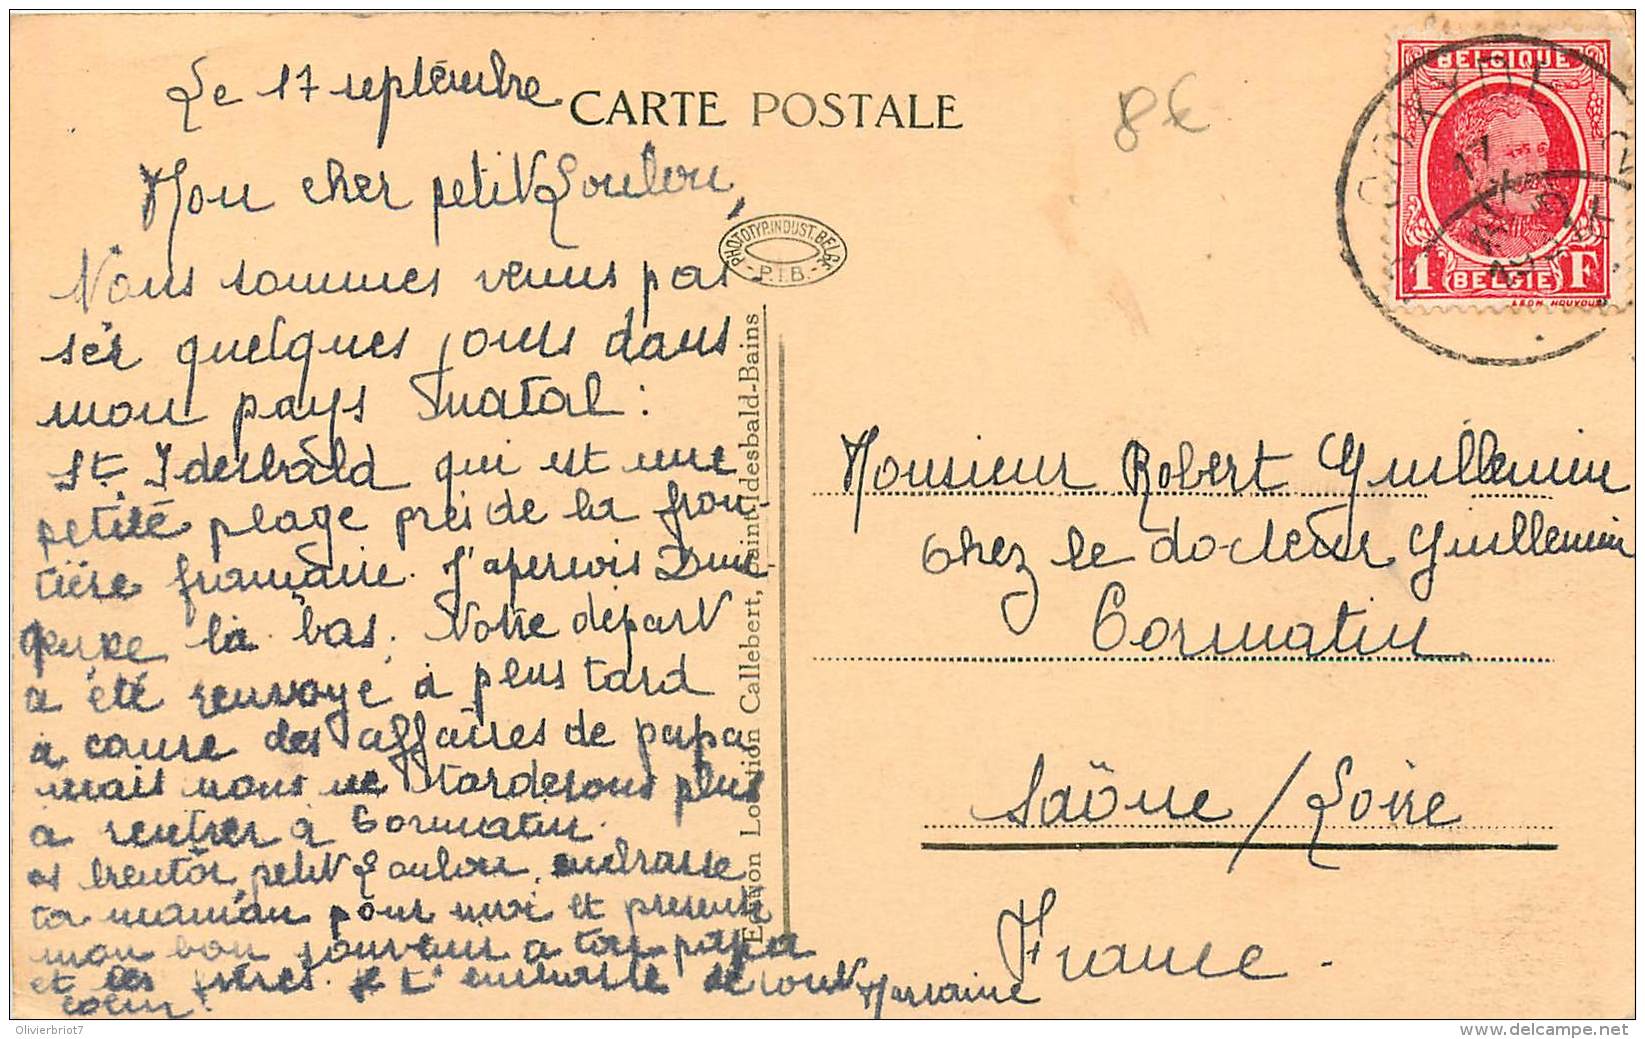 Le 17 septembre
CARTE POSTALE
8€
Mon cher petit Loulou,
Nous sommes venus pas
ser quelques jours dans
mon pays natal :
St Idesbald qui est une
petite plage près de la fron-
tière française. J'aperçois Dun
kerke là bas. Notre départ
a été renvoyé à plus tard
à cause des affaires de papa
mais nous ne tarderons plus
à rentrer à Cormatin.
A bientôt, petit Loulou, embrasse
ta maman pour moi et presente
mon bon souvenir a ton papa
et tes frères. Je t'embrasse de tout
coeur.
PHOTOTYP. INDUST. BELGE
- P.I.B. -
Edition Location Callebert, Saint-Idesbald-Bains
BELGIQUE
1 F
BELGIË
LEON HOUYOUX
COXYDE
17
Monsieur Robert Guillemin
chez le docteur Guillemin
Cormatin
Saône / Loire
France.
Olivierbriot7
www.delcampe.net